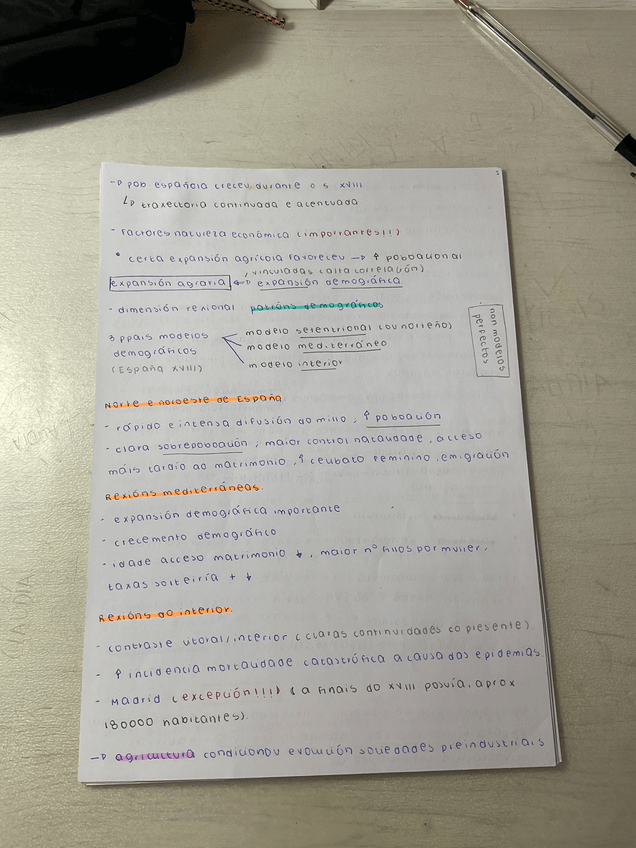 → pob española creceu durante o s. XVIII
↳ traxectoria continuada e acentuada
- Factores natureza económica (importantes!!)
• certa expansión agrícola favoreceu → ↑ poboacional
, vinculadas (alta correlación)
expansión agraria ↔ expansión demográfica
- dimensión rexional patróns demográficos
3 ppais modelos
demográficos
(España XVIII)
modelo setentrional (ou norteño)
modelo mediterráneo
modelo interior
non modelos
perfectos
Norte e noroeste de España
- rápido e intensa difusión do millo, ↑ poboación
- clara sobrepoboación, maior control natalidade, acceso
máis tardío ao matrimonio, ↑ celibato feminino, emigración
Rexións mediterráneas.
- expansión demográfica importante
- crecemento demográfico
- idade acceso matrimonio ↓, maior nº fillos por muller,
taxas solteiría + ↓
Rexións do interior.
- contraste litoral/interior (claras continuidades co presente)
- ↑ incidencia mortalidade catastrófica a causa das epidemias.
- Madrid (excepción!!!) (a finais do XVIII posuía, aprox
180000 habitantes).
→ agricultura condicionou evolución sociedades preindustriais